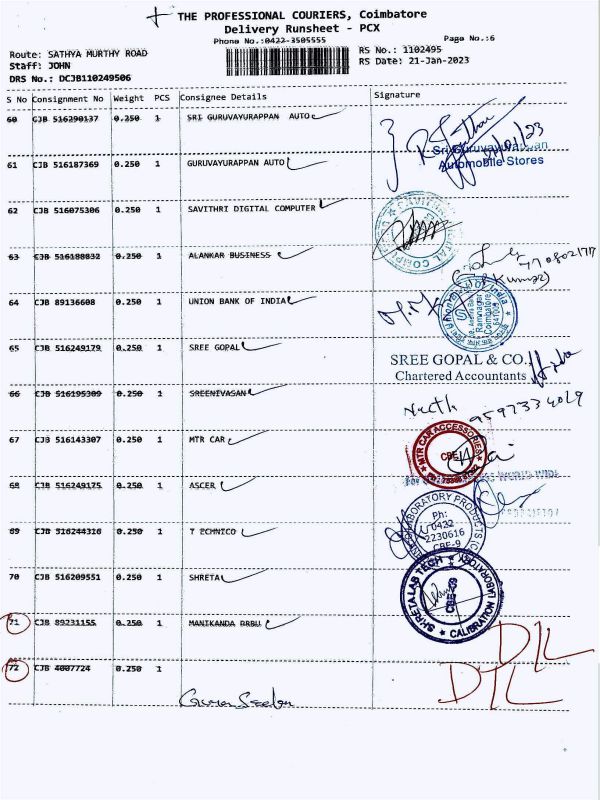 THE PROFESSIONAL COURIERS, Coimbatore
Delivery Runsheet - PCX
Phone No.:0422-3505555 Page No.:6
Route: SATHYA MURTHY ROAD RS No.: 1102495
Staff: JOHN RS Date: 21-Jan-2023
DRS No.: DCJB110249506
S No Consignment No Weight PCS Consignee Details Signature
60 CJB 516290137 0.250 1 SRI GURUVAYURAPPAN AUTO
Sri Guruvayurappan
Automobile Stores
61 CJB 516187369 0.250 1 GURUVAYURAPPAN AUTO
62 CJB 516075306 0.250 1 SAVITHRI DIGITAL COMPUTER
63 CJB 516188032 0.250 1 ALANKAR BUSINESS
64 CJB 89136608 0.250 1 UNION BANK OF INDIA
Union Bank of India
Ramnagar
Coimbatore
641009
65 CJB 516249179 0.250 1 SREE GOPAL
SREE GOPAL & CO.,
Chartered Accountants
66 CJB 516195309 0.250 1 SREENIVASAN
9597334029
67 CJB 516143307 0.250 1 MTR CAR
MTR CAR ACCESSORIES
CBE
68 CJB 516249175 0.250 1 ASCER
69 CJB 516244316 0.250 1 T ECHNICO
LABORATORY PRODUCTS
Ph:
0422
2230616
CBE-9
70 CJB 516209551 0.250 1 SHRETA
SHRETA LAB TECH
CALIBRATION LABORATORY
CBE-09
71 CJB 89231155 0.250 1 MANIKANDA DRBU
DTL
72 CJB 4007724 0.250 1
DTL